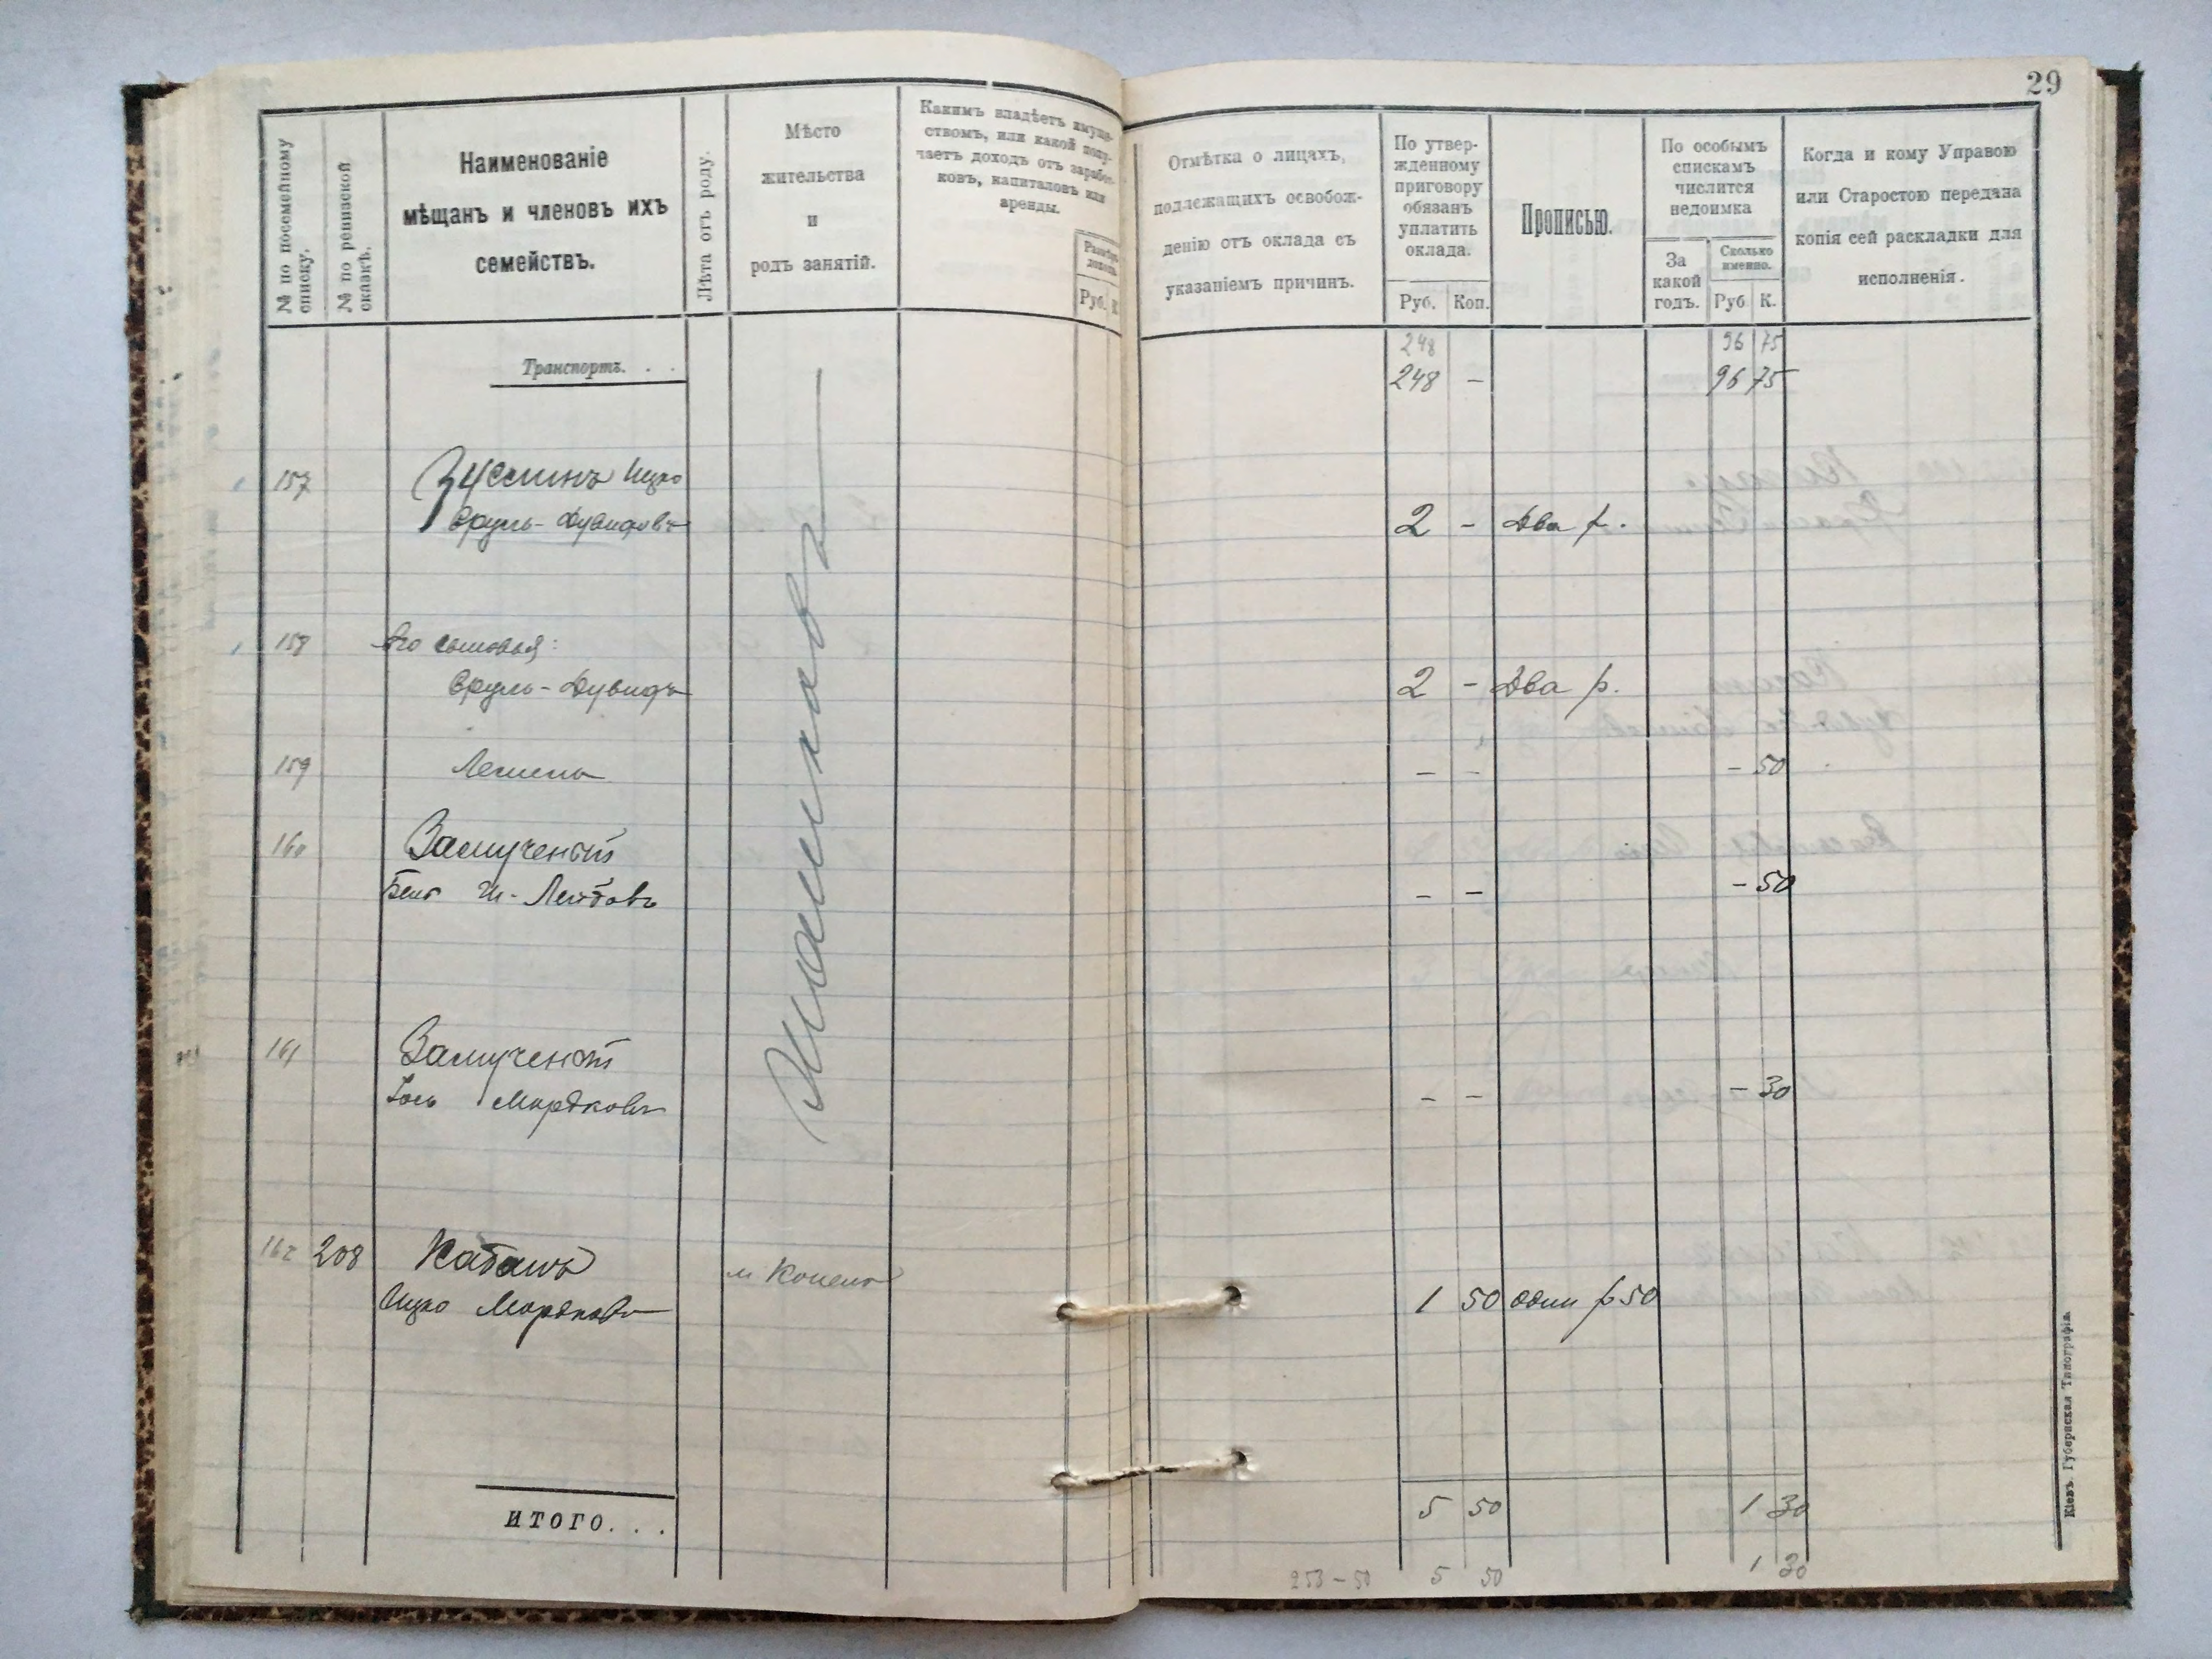 29
№ по посемейному списку.
№ по ревизской сказкѣ.
Наименованіе
мѣщанъ и членовъ ихъ
семействъ.
Лѣта отъ роду.
Мѣсто
жительства
и
родъ занятій.
Какимъ владѣетъ имуще-
ствомъ, или какой полу-
чаетъ доходъ отъ заработ-
ковъ, капиталовъ или
аренды.
Руб. К
Отмѣтка о лицахъ,
подлежащихъ освобож-
денію отъ оклада съ
указаніемъ причинъ.
По утвер-
жденному
приговору
обязанъ
уплатить
оклада.
Руб. Коп.
Прописью.
По особымъ
спискамъ
числится
недоимка
За
какой
годъ.
Сколько
именно.
Руб К.
Когда и кому Управою
или Старостою передана
копія сей раскладки для
исполненія.
248 96 75
Транспортъ. . . 248 - 96 75
157 Зусминъ Ицко
Сруль-Дувидовъ 2 - Два р.
158 Его сыновья:
Сруль-Дувидъ 2 - Два р.
159 - - - 50
160 Замучений
Ш-Лейбовъ - - - 50
161 Замучений
Іось Мордковъ - - - 30
162 208 Кабанъ
Ицко Мордковъ 1 50 один р 50
ИТОГО. . . 5 50 1 30
253-50 5 50 1 30
Кіевъ. Губернская Типографія